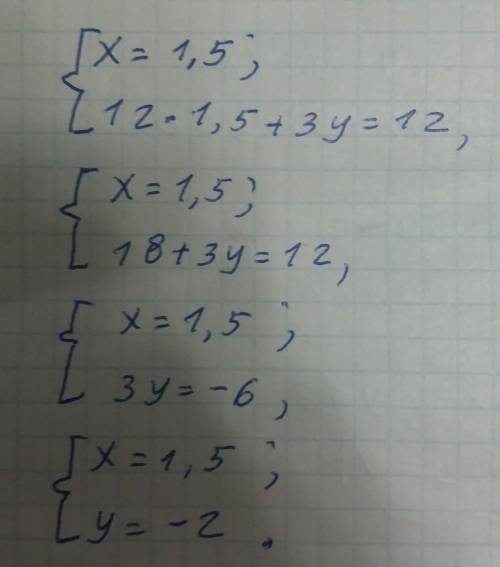 x = 1,5;
12·1,5+3y=12,
x=1,5;
18+3y=12,
x=1,5;
3y=-6,
x=1,5;
y=-2.